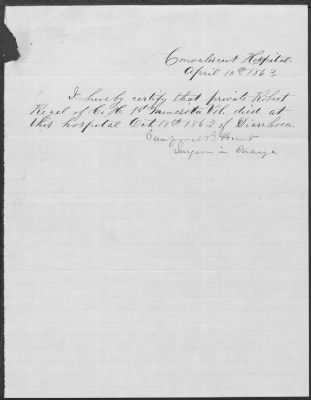 Convalescent Hospital
April 18th 1863.
I hereby certify that private Robert
Regel of Co. H. 1st Minnesota Vols. died at
this hospital Oct. 18th 1862 of Diarrhoea.
Sanford B Hunt
Surgeon in Charge